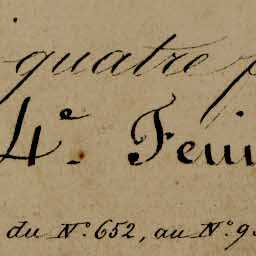 quatre p
4e. Feui
du No. 652, au No. 9